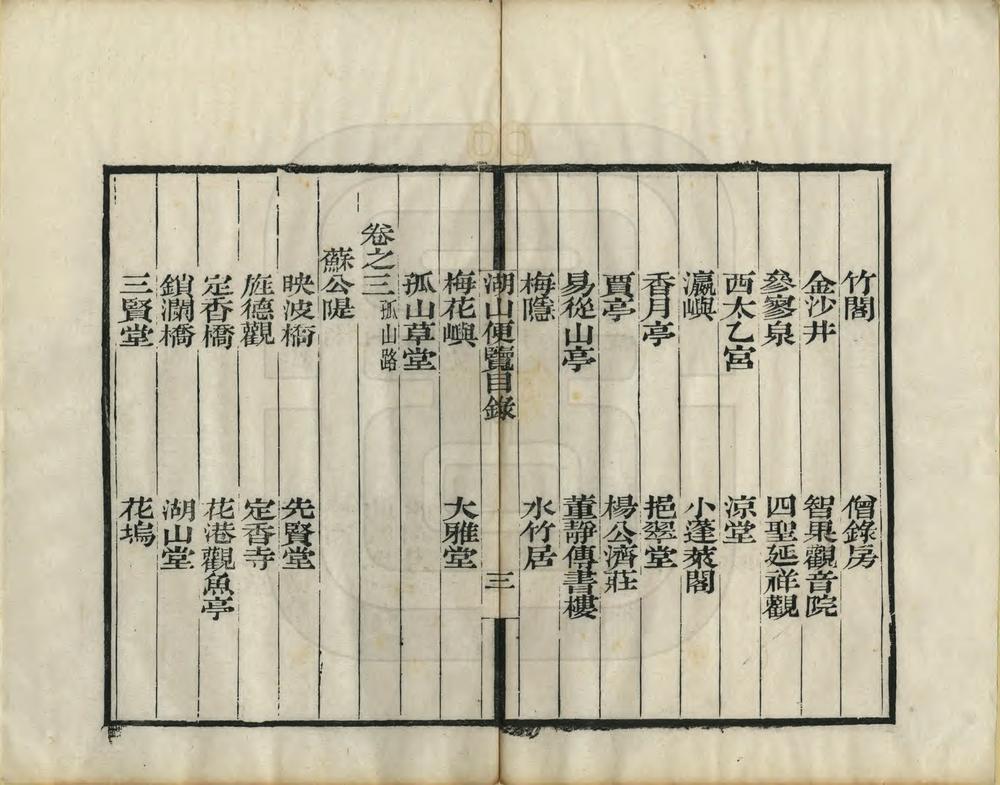 竹閣　僧錄房
金沙井　智果觀音院
參寥泉　四聖延祥觀
西太乙宮　涼堂
瀛嶼　小蓬萊閣
香月亭　挹翠堂
賈亭　楊公濟莊
易從山亭　董靜傳書樓
梅隱　水竹居
湖山便覽目錄　三
梅花嶼　大雅堂
孤山草堂
卷之三孤山路
蘇公隄
映波橋　先賢堂
旌德觀　定香寺
定香橋　花港觀魚亭
鎖瀾橋　湖山堂
三賢堂　花塢